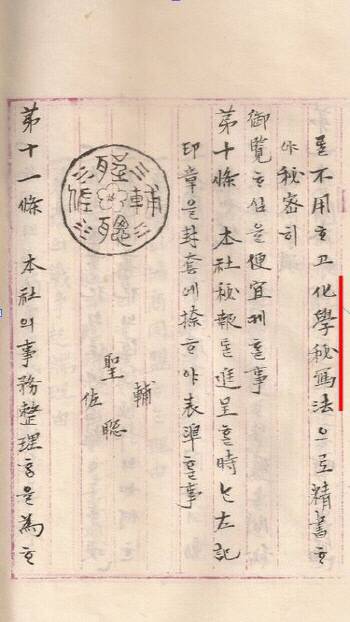 를不用ᄒᆞ고化學秘寫法으로精書ᄒᆞ
야秘密히
御覽ᄒᆞ심을便宜케ᄒᆞᆯ事
苐十條 本社秘報ᄅᆞᆯ進呈ᄒᆞᆯ時ᄂᆞᆫ左記
印章을封套에捺ᄒᆞ야表準ᄒᆞᆯ事
聖輔聰佐
輔
聖聰
佐
苐十一條 本社의事務整理홈을為ᄒᆞ